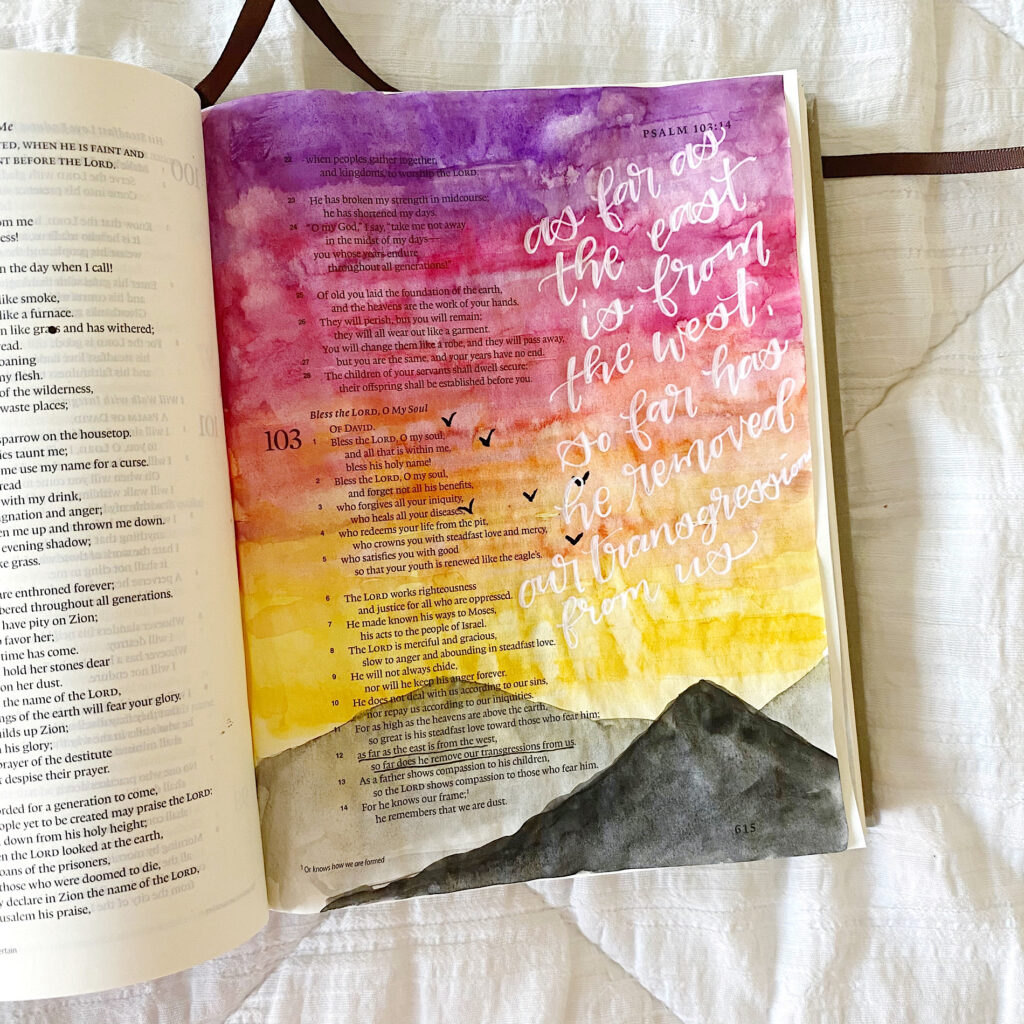 Me
TED, WHEN HE IS FAINT AND
NT BEFORE THE LORD.
om me
ess!
n the day when I call!
like smoke,
like a furnace.
n like grass and has withered;
read.
oaning
ny flesh.
of the wilderness,
waste places;
sparrow on the housetop.
ies taunt me;
me use my name for a curse.
read
with my drink,
gnation and anger;
en me up and thrown me down.
evening shadow;
ke grass.
are enthroned forever;
bered throughout all generations.
have pity on Zion;
o favor her;
time has come.
hold her stones dear
on her dust.
the name of the LORD,
ngs of the earth will fear your glory.
uilds up Zion;
n his glory;
prayer of the destitute
t despise their prayer.
orded for a generation to come,
ople yet to be created may praise the LORD:
down from his holy height;
en the LORD looked at the earth,
oans of the prisoners,
those who were doomed to die,
y declare in Zion the name of the LORD,
usalem his praise,
ertain
PSALM 103:14
22 when peoples gather together,
and kingdoms, to worship the LORD.
23 He has broken my strength in midcourse;
he has shortened my days.
24 "O my God," I say, "take me not away
in the midst of my days—
you whose years endure
throughout all generations!"
25 Of old you laid the foundation of the earth,
and the heavens are the work of your hands.
26 They will perish, but you will remain;
they will all wear out like a garment.
You will change them like a robe, and they will pass away,
27 but you are the same, and your years have no end.
28 The children of your servants shall dwell secure;
their offspring shall be established before you.
Bless the LORD, O My Soul
103 OF DAVID.
1 Bless the LORD, O my soul,
and all that is within me,
bless his holy name!
2 Bless the LORD, O my soul,
and forget not all his benefits,
3 who forgives all your iniquity,
who heals all your diseases,
4 who redeems your life from the pit,
who crowns you with steadfast love and mercy,
5 who satisfies you with good
so that your youth is renewed like the eagle's.
6 The LORD works righteousness
and justice for all who are oppressed.
7 He made known his ways to Moses,
his acts to the people of Israel.
8 The LORD is merciful and gracious,
slow to anger and abounding in steadfast love.
9 He will not always chide,
nor will he keep his anger forever.
10 He does not deal with us according to our sins,
nor repay us according to our iniquities.
11 For as high as the heavens are above the earth,
so great is his steadfast love toward those who fear him;
12 as far as the east is from the west,
so far does he remove our transgressions from us.
13 As a father shows compassion to his children,
so the LORD shows compassion to those who fear him.
14 For he knows our frame;¹
he remembers that we are dust.
¹ Or knows how we are formed
615
as far as
the east
is from
the west,
so far has
he removed
our transgressions
from us